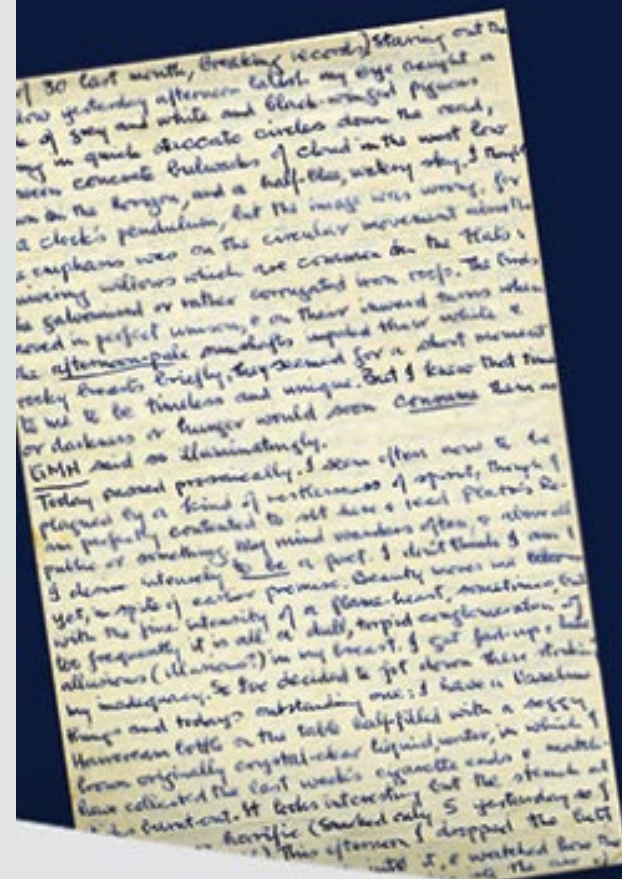 of 30 last month, breaking records) Staring out the
yesterday afternoon my eye caught a
of grey and white and black-winged pigeons
in quick staccato circles down the road,
concrete bulwarks of cloud in the west low
on the horizon, and a half-blue, watery sky. I
a clock's pendulum, but the image was wrong, for
emphasis was on the circular movement
willows which are common in the Flats &
galvanised or rather corrugated iron roofs. The birds
in perfect unison, & on their inward turns when
the afternoon-pale sunshafts their white &
breasts briefly, they seemed for a short moment
to me to be timeless and unique. But I knew that time
or darkness or hunger would soon consume them as
GMH said so illuminatingly.
Today passed prosaically. I seem often now to be
plagued by a kind of restlessness of spirit, though I
am perfectly contented to sit here & read Plato's Re-
public or something. My mind wanders often, & above all
I desire intensely to be a poet. I don't think I am I
yet, in spite of earlier promise. Beauty moves me
with the fine intensity of a flame-heart, sometimes but
too frequently it is all a dull, torpid conglomeration of
allusions (illusions?) in my breast. I get fed-up,
my inadequacy. So I've decided to jot down these
things and today's outstanding one: I have a Vaseline
Haircream bottle on the table half-filled with a soggy
brown originally crystal-clear liquid, water, in which I
have collected the last week's cigarette ends & match-
burnt-out. It looks interesting but the stench
horrific (Smoked only 5 yesterday so I
This afternoon I dropped the butt
into it, & watched how the